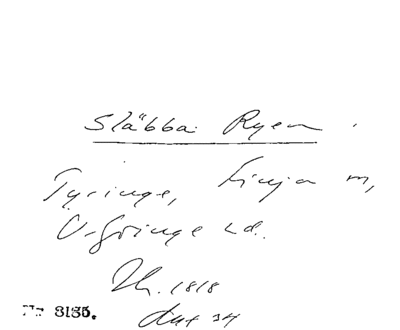 Släbba Ryen
Tyringe, Finja m,
V-Göinge hd.
Th. 1818
Nr 3135.